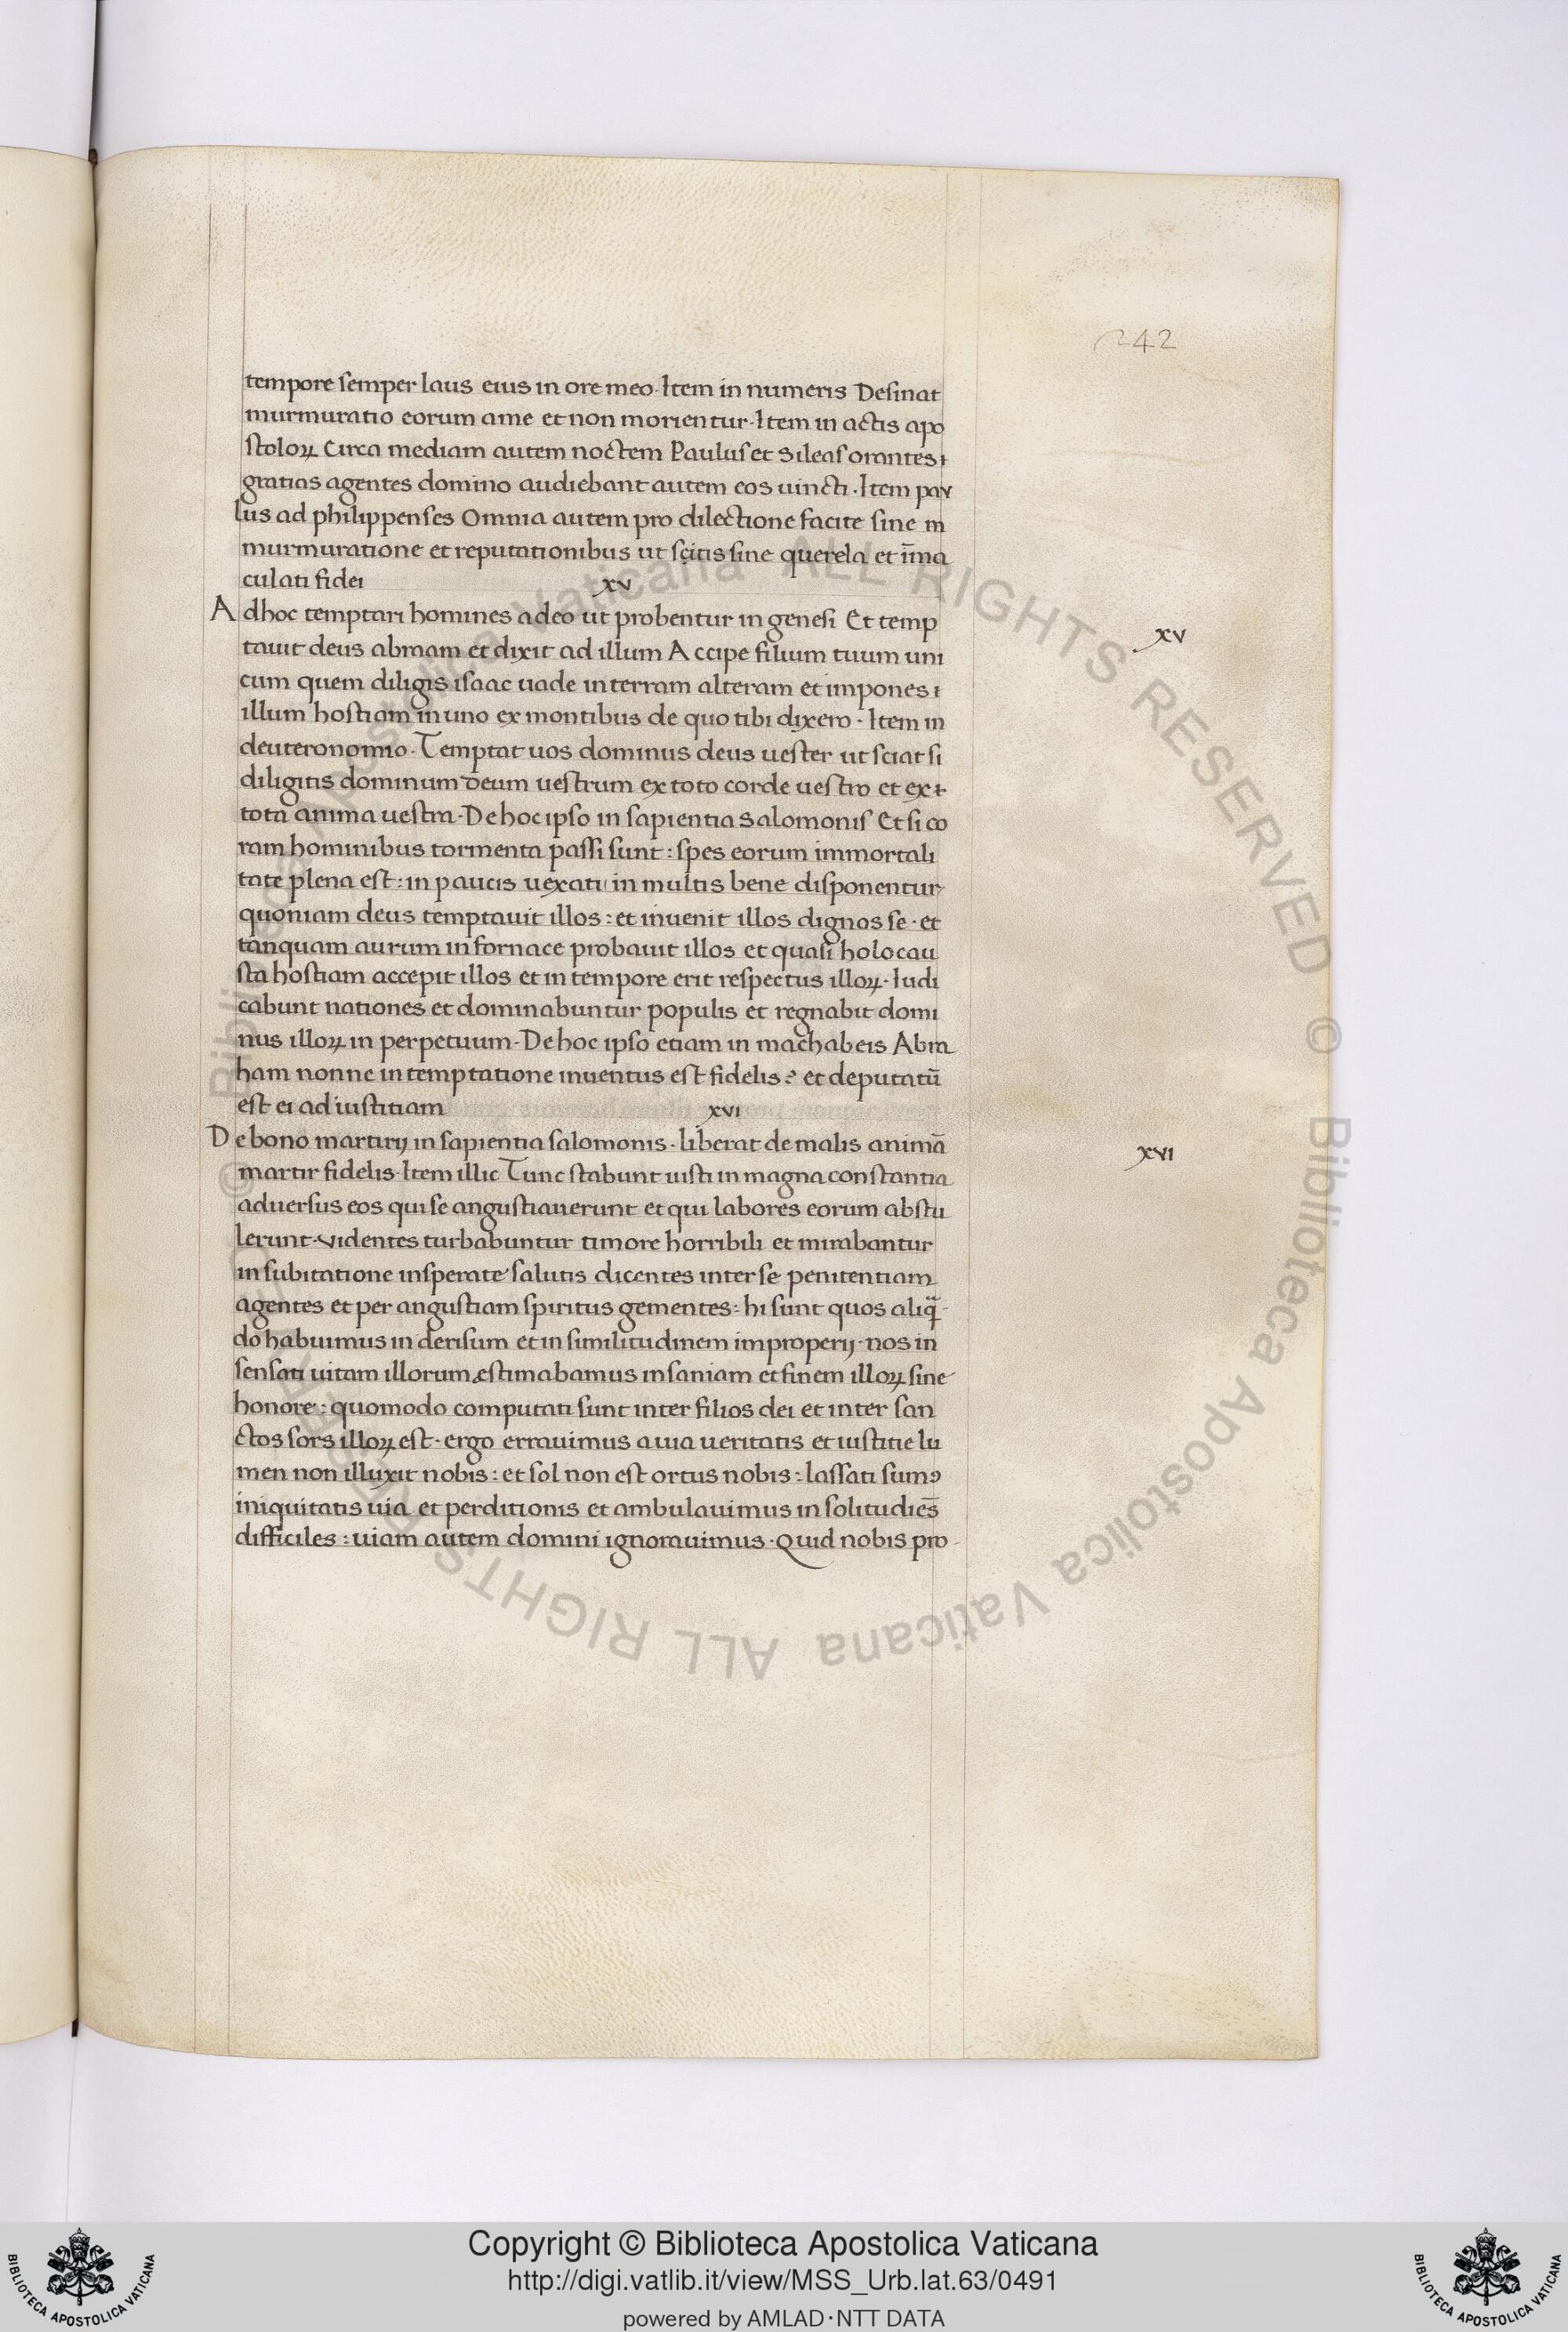 242
tempore semper laus eius in ore meo · Item in numeris Desinat
murmuratio eorum a me et non morientur · Item in actis apo
stoloꝝ Circa mediam autem noctem Paulus et Sileas orantes
gratias agentes domino audiebant autem eos uincti · Item pau
lus ad philippenses Omnia autem pro dilectione facite sine m
murmuratione et reputationibus ut scitis sine querela et īma
culati fidei xv
Ad hoc temptari homines a deo ut probentur in genesi Et temp xv
tauit deus abraam et dixit ad illum Accipe filium tuum uni
cum quem diligis isaac uade in terram alteram et impones
illum hostiam in uno ex montibus de quo tibi dixero · Item in
deuteronomio · Temptat uos dominus deus uester ut sciat si
diligitis dominum deum uestrum ex toto corde uestro et ex
tota anima uestra · De hoc ipso in sapientia Salomonis Et si co
ram hominibus tormenta passi sunt : spes eorum immortali
tate plena est : in paucis uexati in multis bene disponentur
quoniam deus temptauit illos : et inuenit illos dignos se · et
tanquam aurum in fornace probauit illos et quasi holocau
sta hostiam accepit illos et in tempore erit respectus illoꝝ · Iudi
cabunt nationes et dominabuntur populis et regnabit domi
nus illoꝝ in perpetuum · De hoc ipso etiam in machabeis Abra
ham nonne in temptatione inuentus est fidelis ? et deputatū
est ei ad iustitiam xvi
De bono martirij in sapientia salomonis · liberat de malis animā xvi
martir fidelis · Item illic Tunc stabunt iusti in magna constantia
aduersus eos qui se angustiauerunt et qui labores eorum abstu
lerunt · videntes turbabuntur timore horribili et mirabantur
in subitatione insperate salutis dicentes inter se penitentiam
agentes et per angustiam spiritus gementes : hi sunt quos aliq̄
do habuimus in derisum et in similitudinem improperij · nos in
sensati uitam illorum æstimabamus insaniam et finem illoꝝ sine
honore : quomodo computati sunt inter filios dei et inter san
ctos sors illoꝝ est · ergo errauimus a uia ueritatis et iustitie lu
men non illuxit nobis : et sol non est ortus nobis : lassati sumꝰ
iniquitatis uia et perditionis et ambulauimus in solitudiēs
difficiles : uiam autem domini ignorauimus · Quid nobis pro
© Biblioteca Apostolica Vaticana ALL RIGHTS RESERVED © Biblioteca Apostolica Vaticana ALL RIGHTS RESERVED
Copyright © Biblioteca Apostolica Vaticana
http://digi.vatlib.it/view/MSS_Urb.lat.63/0491
powered by AMLAD·NTT DATA
BIBLIOTECA APOSTOLICA VATICANA
BIBLIOTECA APOSTOLICA VATICANA